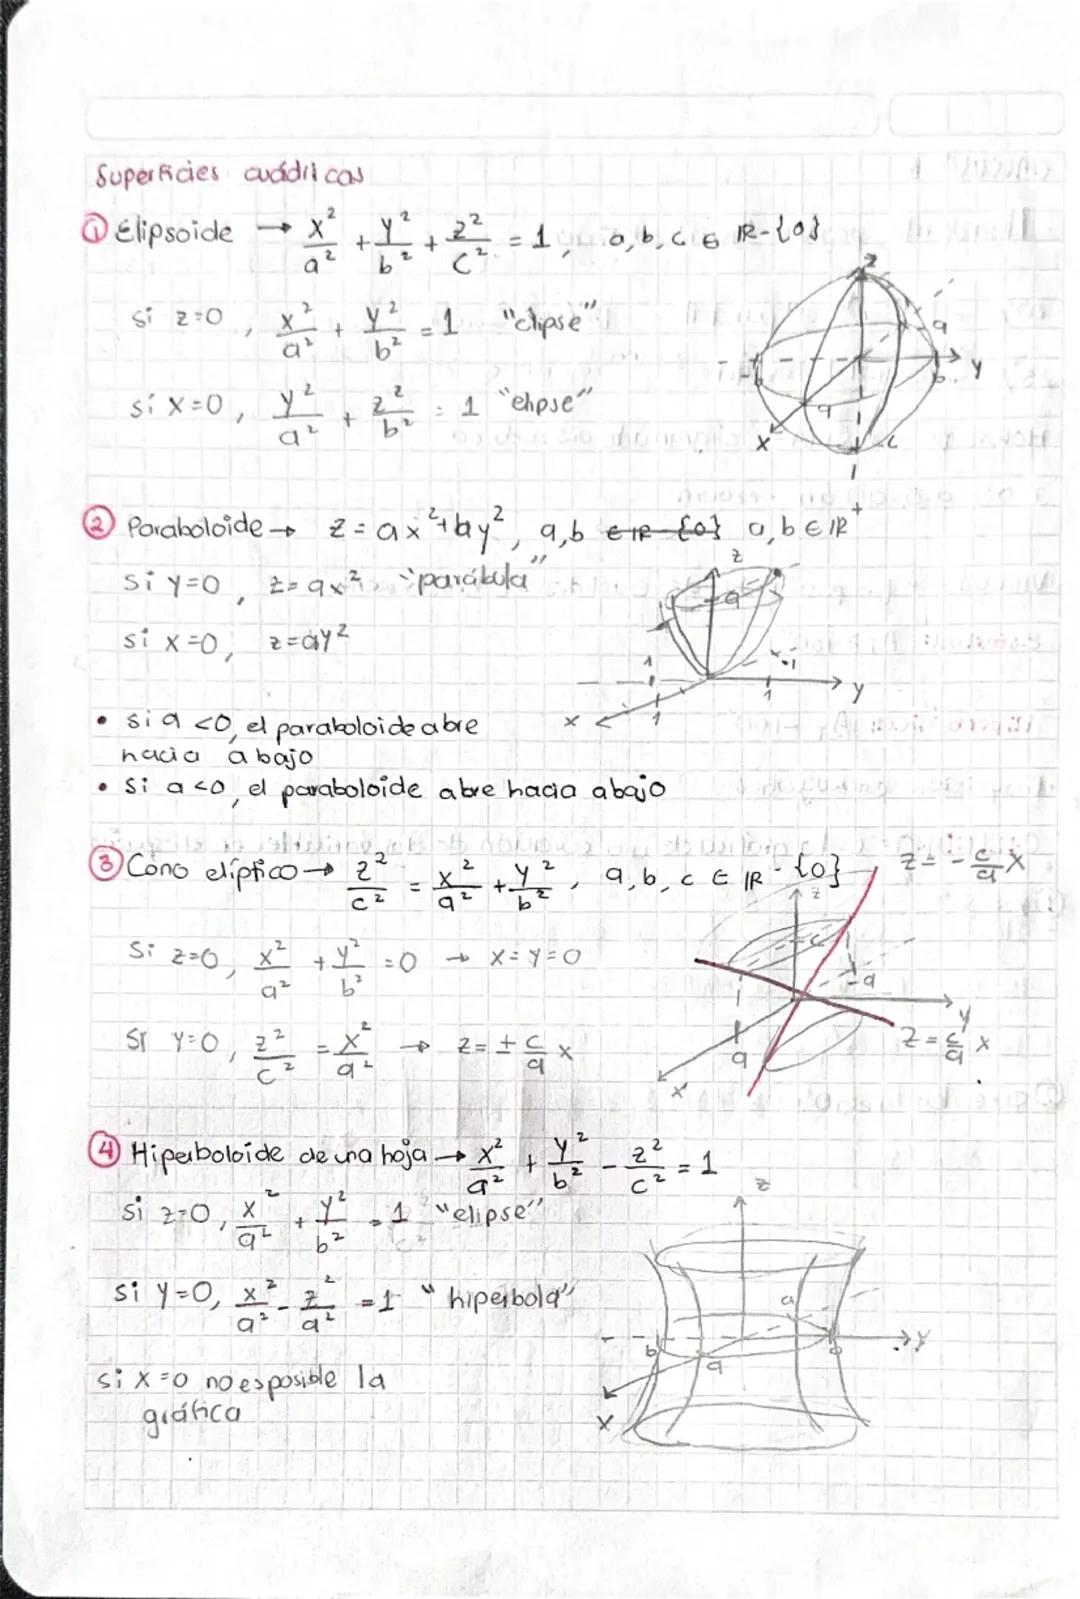 Superficies cuádricas
① Elipsoide → x²/a² + y²/b² + z²/c² = 1, a, b, c ∈ ℝ-{0}
si z=0, x²/a² + y²/b² = 1 "elipse"
si x=0, y²/a² + z²/b² = 1 "elipse"
z
a
y
-b
b
a
x
c
② Paraboloide → z = ax² + by², a,b ∈ ℝ-{0} a,b ∈ ℝ⁺
si y=0, z=ax² "parábula"
si x=0, z=ay²
z
a
1
-1
y
1
x
1
• si a <0, el paraboloide abre
hacia abajo
• Si a <0, el paraboloide abre hacia abajo
③ Cono elíptico → z²/c² = x²/a² + y²/b², a, b, c ∈ ℝ-{0}
z = -c/a x
Si z=0, x²/a² + y²/b² = 0 → x=y=0
si y=0, z²/c² = x²/a² → z = ± c/a x
z
c
-a
y
a
x
z = c/a x
④ Hiperboloide de una hoja → x²/a² + y²/b² - z²/c² = 1
si z=0, x²/a² + y²/b² = 1 "elipse"
si y=0, x²/a² - z²/a² = 1 "hiperbola"
si x=0 no es posible la
gráfica
z
a
y
b
b
a
x